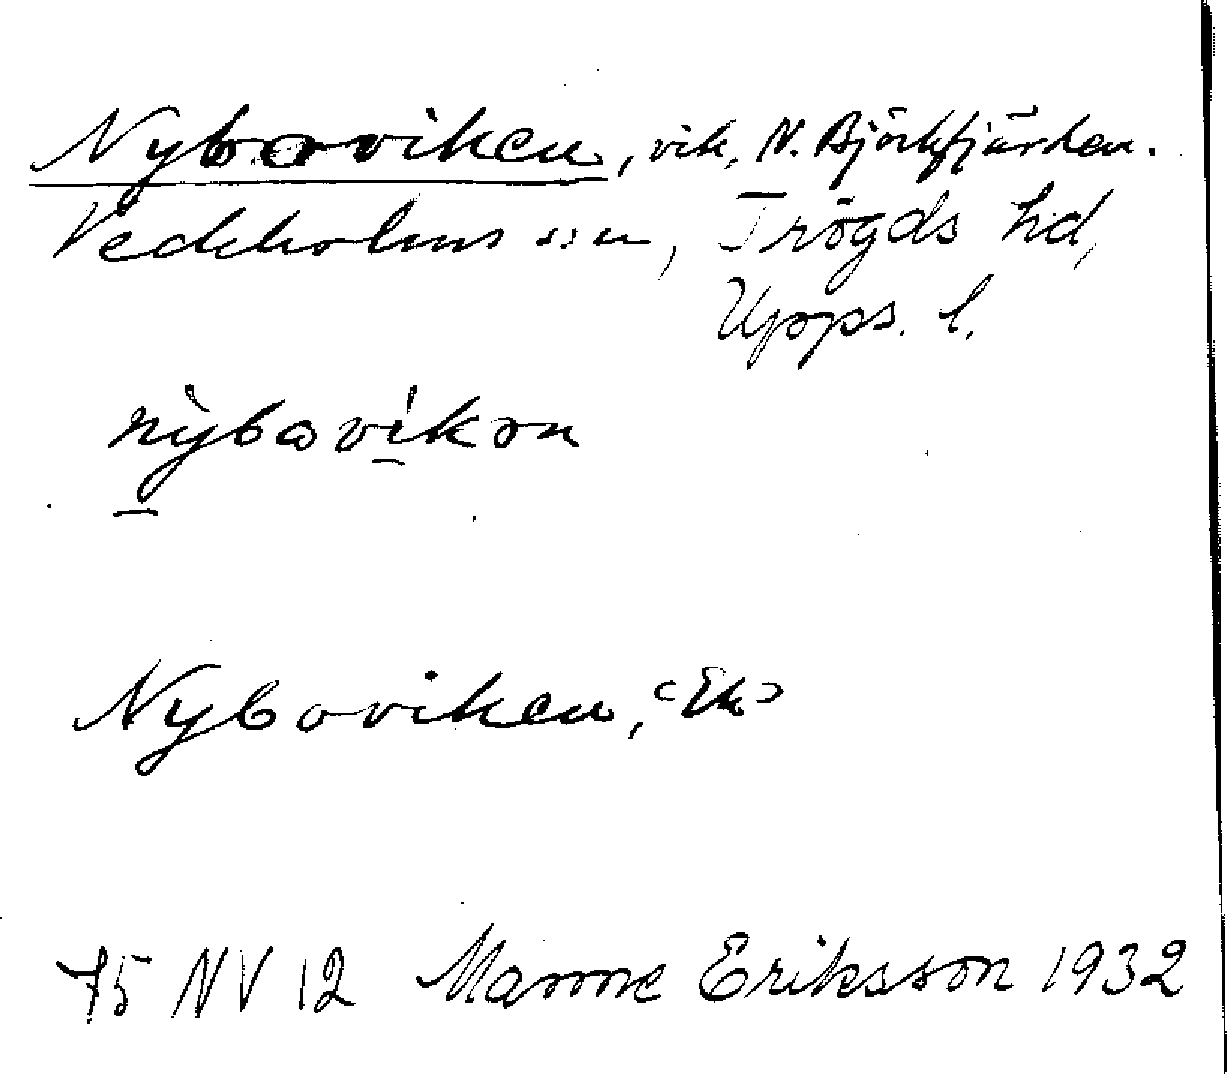 Nyboviken, vik, N. Björkfjärden.
Veckholms sn, Trögds hd,
Upps. l.
nỳbωvikən
Nyboviken, <Ek>
75 NV 12 Manne Eriksson 1932